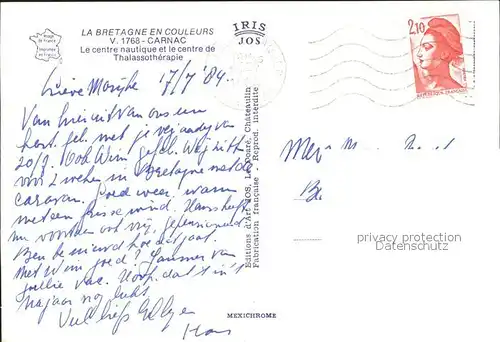 LA BRETAGNE EN COULEURS
V. 1768 - CARNAC
Le centre nautique et le centre de
Thalassothérapie
IRIS
JOS
2,10
REPUBLIQUE FRANÇAISE
Lieve 17/7 '84
Van hieruit van ons een
hart. fel. met je verjaardag van
20/7. Ook Wim gefel. Wij zitten
voor 2 weken in Bretagne met de
caravan. Goed weer, warm
met een frisse wind. Hans heeft
nu voorgoed vrij, gepensioneerd
Ben benieuwd hoe dat gaat.
Met Wim goed? Jammer van
jullie vac. Hoop dat 't in 't
najaar nog lukt.
Veel liefs
Editions d'Art JOS, Le Doaré, Châteaulin
Fabrication française - Reprod. interdite
MEXICHROME
privacy protection
oldthing.de